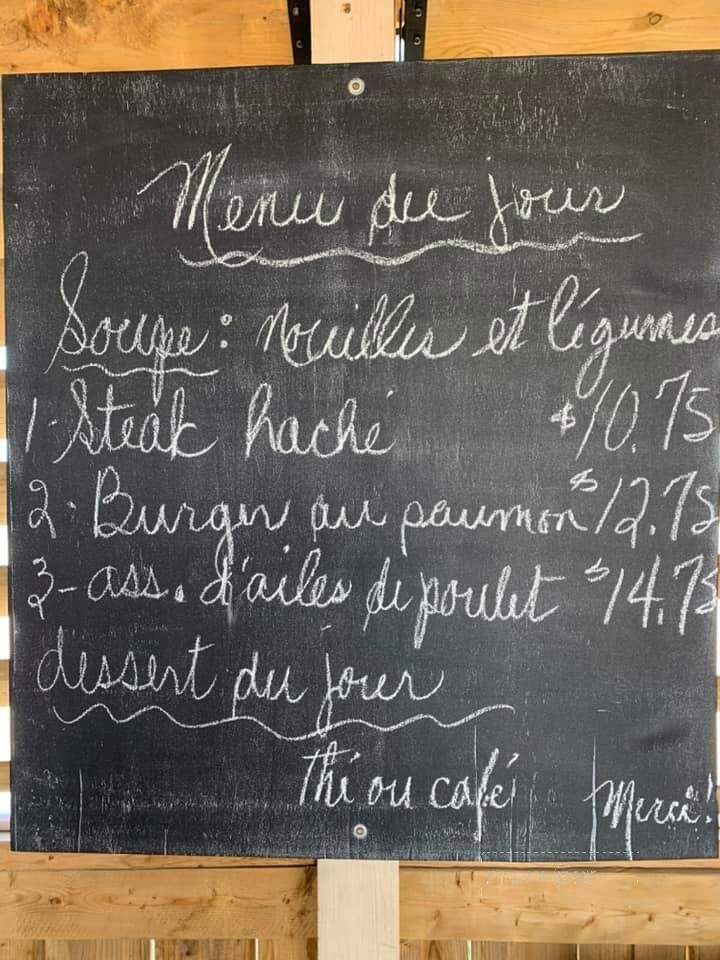 Menu du jour
Soupe: nouilles et légumes
1-Steak haché $10.75
2-Burger au saumon $12.75
3-ass. d'ailes de poulet $14.75
dessert du jour
thé ou café
Merci!